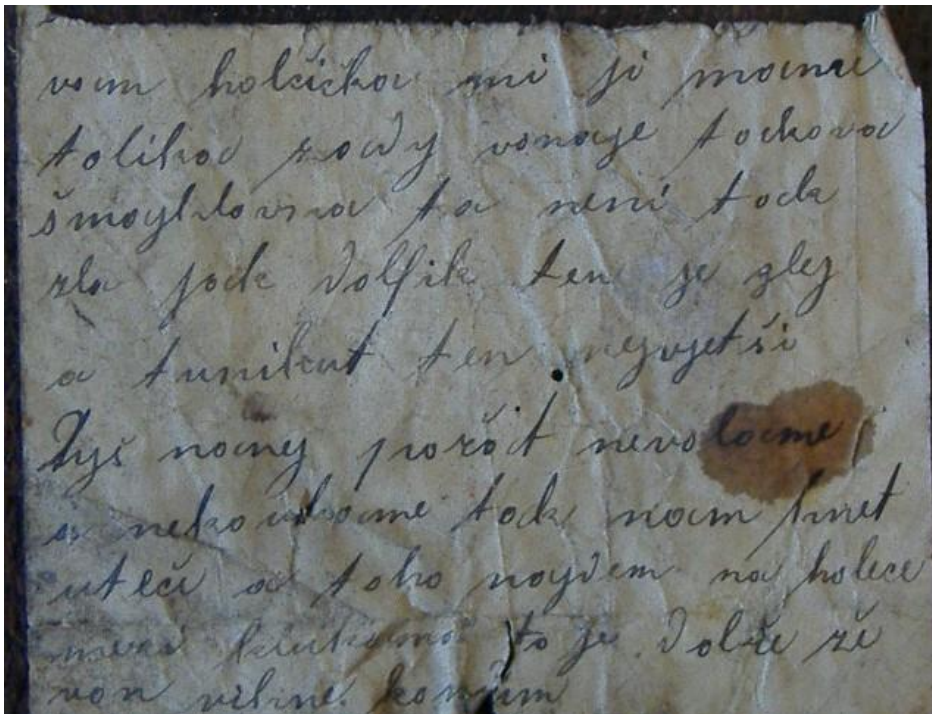 vam holčička mi ji mame
tolika rady vona je takova
šmaykdavna ta neni tak
zla jak dolfik ten je zlej
a tunikut ten nejvjetši
Dyš na nej pořat nevolame
a nekoukame tak nam hnet
uteče a toho naydem na holece
mezi klukama to je dobře že
von vihne konum